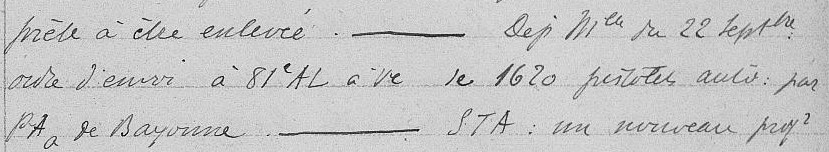 prête à être enlevée. — Dep Mlle du 22 Septbre:
ordre d'envoi à 81e AL à Ve de 1620 pistolets auto: par
PAa de Bayonne — STA: un nouveau proj